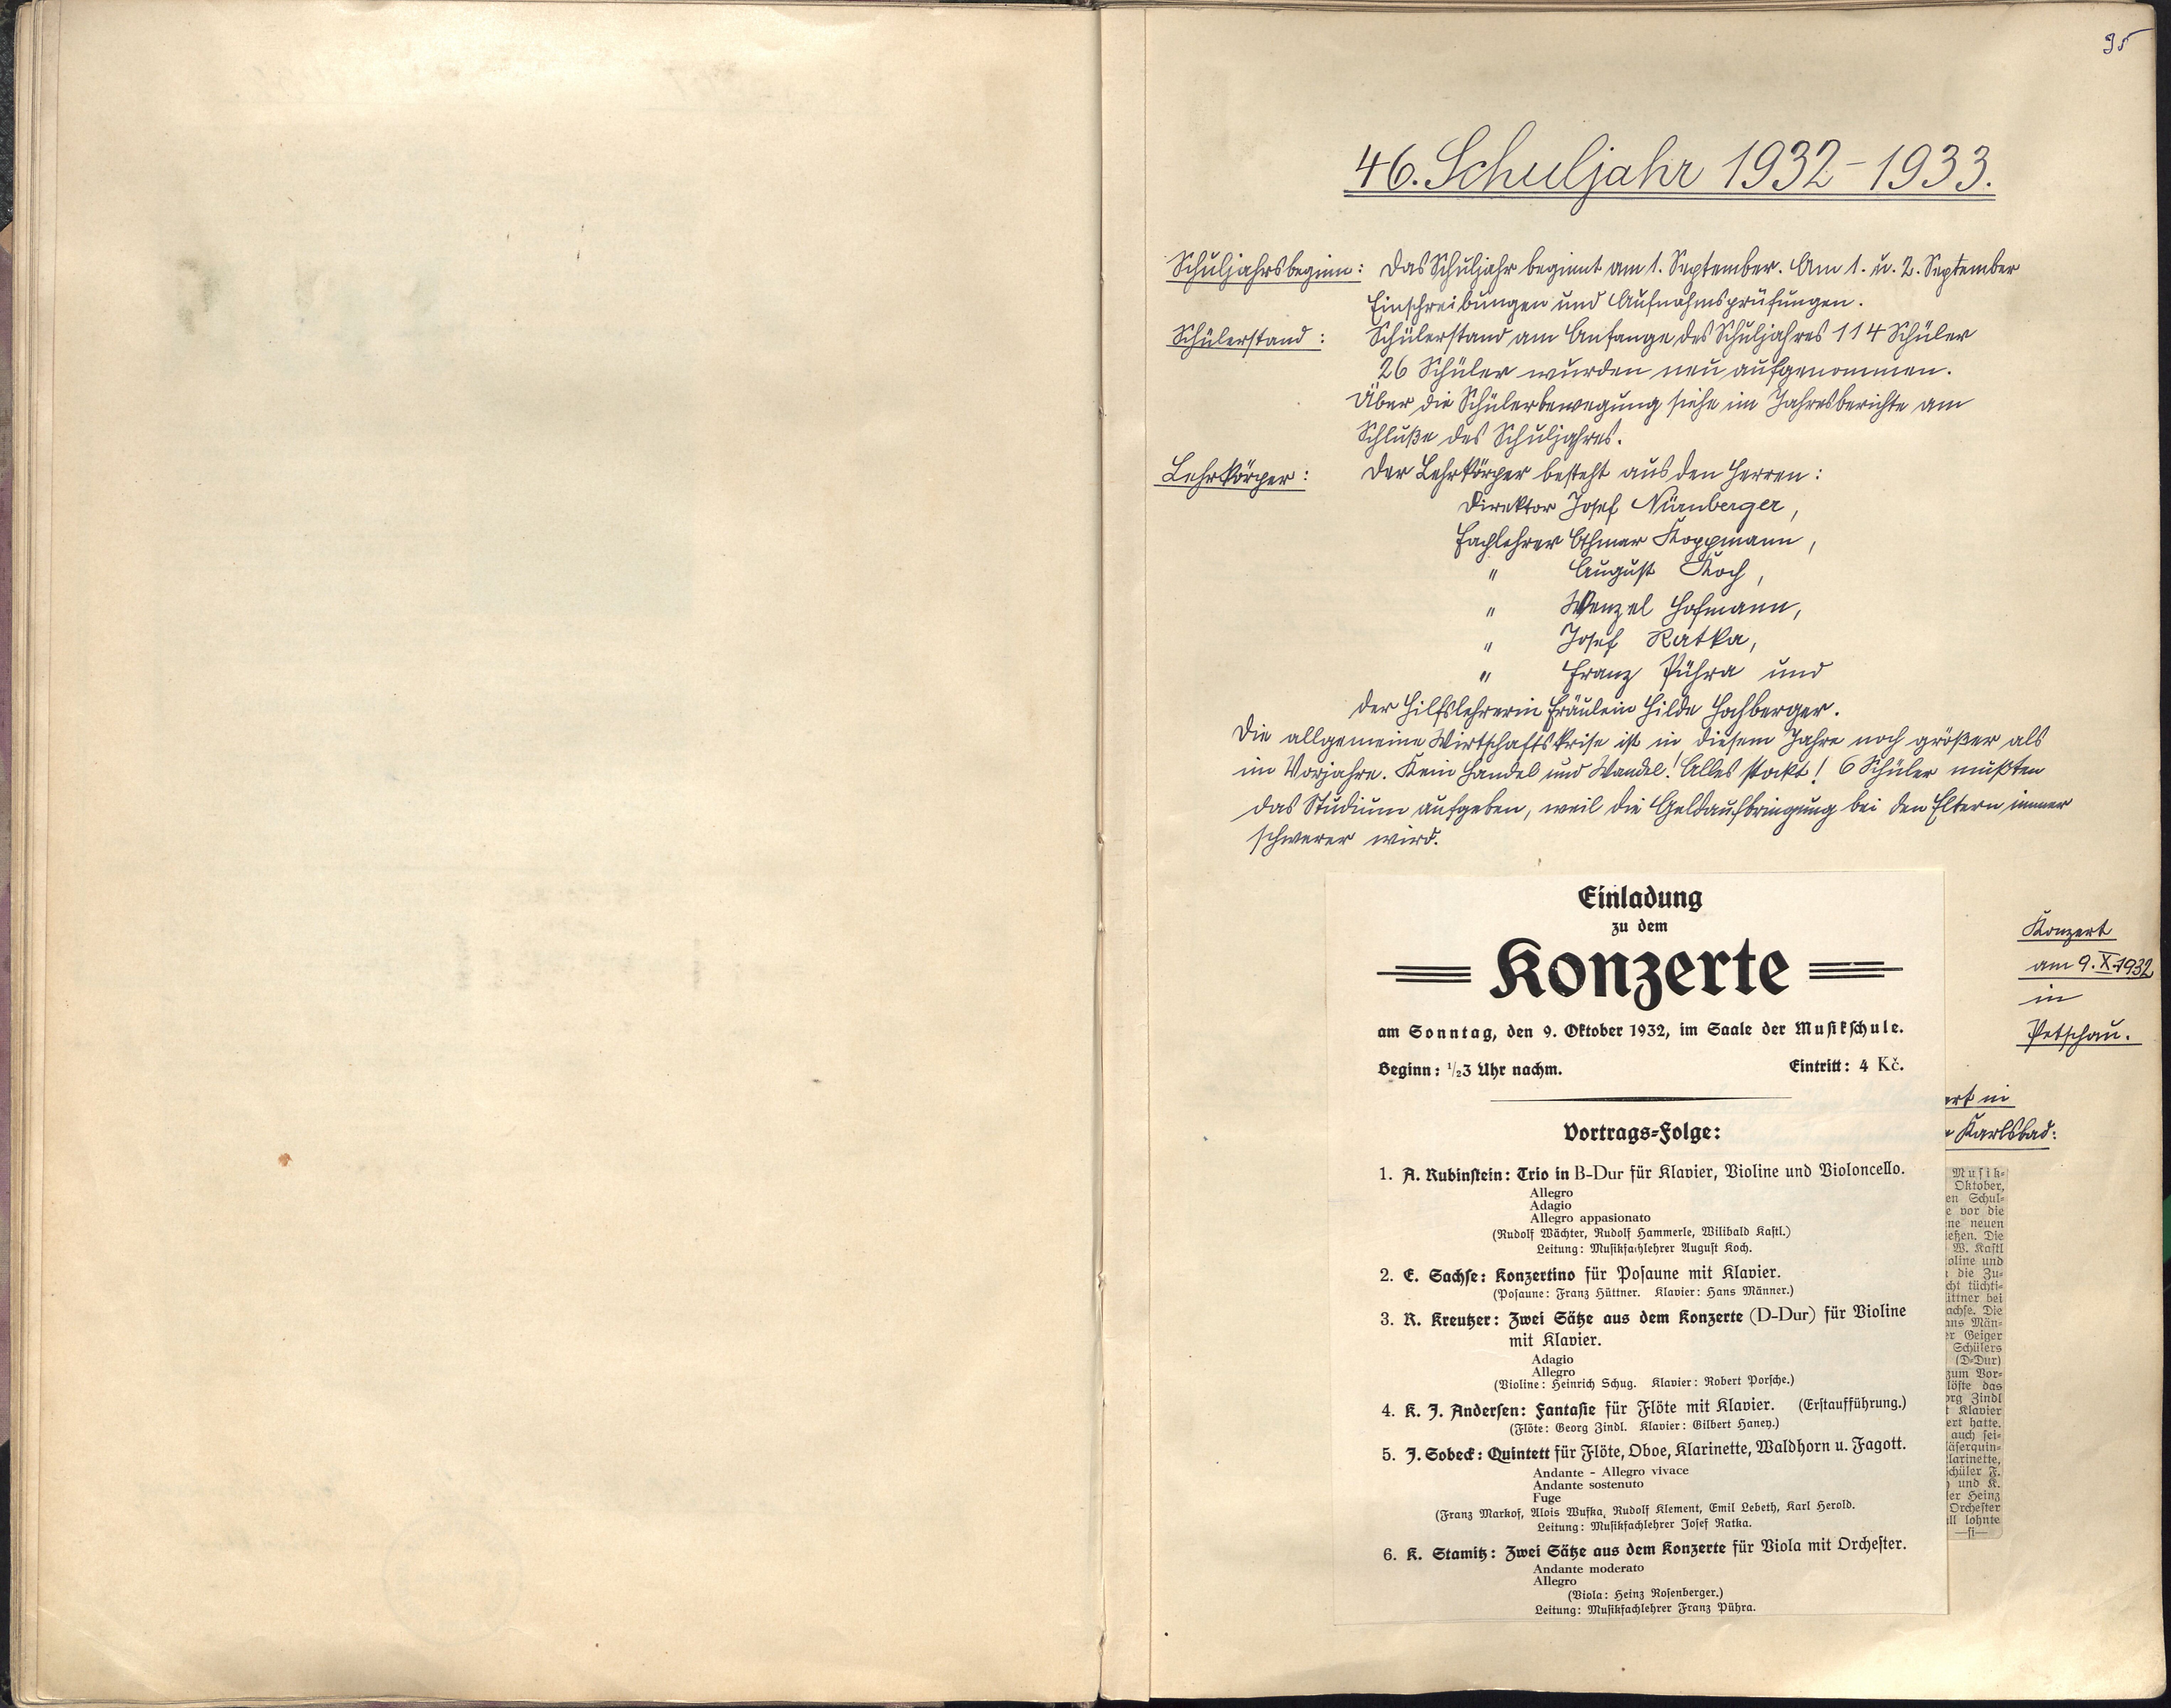 95
46. Schuljahr 1932-1933.
Schuljahrsbeginn: Das Schuljahr beginnt am 1. September. Am 1. u. 2. September
Einschreibungen und Aufnahmsprüfungen.
Schülerstand: Schülerstand am Anfange des Schuljahres 114 Schüler
26 Schüler wurden neu aufgenommen.
Über die Schülerbewegung siehe im Jahresberichte am
Schluße des Schuljahres.
Lehrkörper: Der Lehrkörper besteht aus den Herren:
Direktor Josef Nürnberger,
Fachlehrer Othmar Koppmann,
" August Koch,
" Wenzel Hofmann,
" Josef Ratka,
" Franz Pühra und
der Hilfslehrerin Fräulein Hilde Hochberger.
Die allgemeine Wirtschaftskrise ist in diesem Jahre noch größer als
im Vorjahre. Kein Handel und Wandel! Alles stockt! 6 Schüler mußten
das Studium aufgeben, weil die Geldaufbringung bei den Eltern immer
schwerer wird.
Einladung
zu dem
Konzerte
am Sonntag, den 9. Oktober 1932, im Saale der Musikschule.
Beginn: 1/23 Uhr nachm. Eintritt: 4 Kč.
Vortrags-Folge:
1. A. Rubinstein: Trio in B-Dur für Klavier, Violine und Violoncello.
Allegro
Adagio
Allegro appasionato
(Rudolf Wächter, Rudolf Hammerle, Wilibald Kastl.)
Leitung: Musikfachlehrer August Koch.
2. E. Sachse: Konzertino für Posaune mit Klavier.
(Posaune: Franz Hüttner. Klavier: Hans Männer.)
3. R. Kreutzer: Zwei Sätze aus dem Konzerte (D-Dur) für Violine
mit Klavier.
Adagio
Allegro
(Violine: Heinrich Schug. Klavier: Robert Porsche.)
4. K. J. Andersen: Fantasie für Flöte mit Klavier. (Erstaufführung.)
(Flöte: Georg Zindl. Klavier: Gilbert Haney.)
5. J. Sobeck: Quintett für Flöte, Oboe, Klarinette, Waldhorn u. Fagott.
Andante - Allegro vivace
Andante sostenuto
Fuge
(Franz Markof, Alois Wufka, Rudolf Klement, Emil Lebeth, Karl Herold.
Leitung: Musikfachlehrer Josef Ratka.
6. K. Stamitz: Zwei Sätze aus dem Konzerte für Viola mit Orchester.
Andante moderato
Allegro
(Viola: Heinz Rosenberger.)
Leitung: Musikfachlehrer Franz Pühra.
Konzert
am 9.X.1932
in
Petschau.
in
Karlsbad:
Musik-
Oktober,
en Schul-
e vor die
ne neuen
ießen. Die
W. Kastl
oline und
die Zu-
cht tüchti-
üttner bei
achse. Die
ans Män-
er Geiger
Schülers
(D-Dur)
zum Vor-
löste das
org Zindl
t Klavier
ert hatte.
auch sei-
läserquin-
larinette,
chüler F.
und K.
ler Heinz
Orchester
all lohnte
—si—